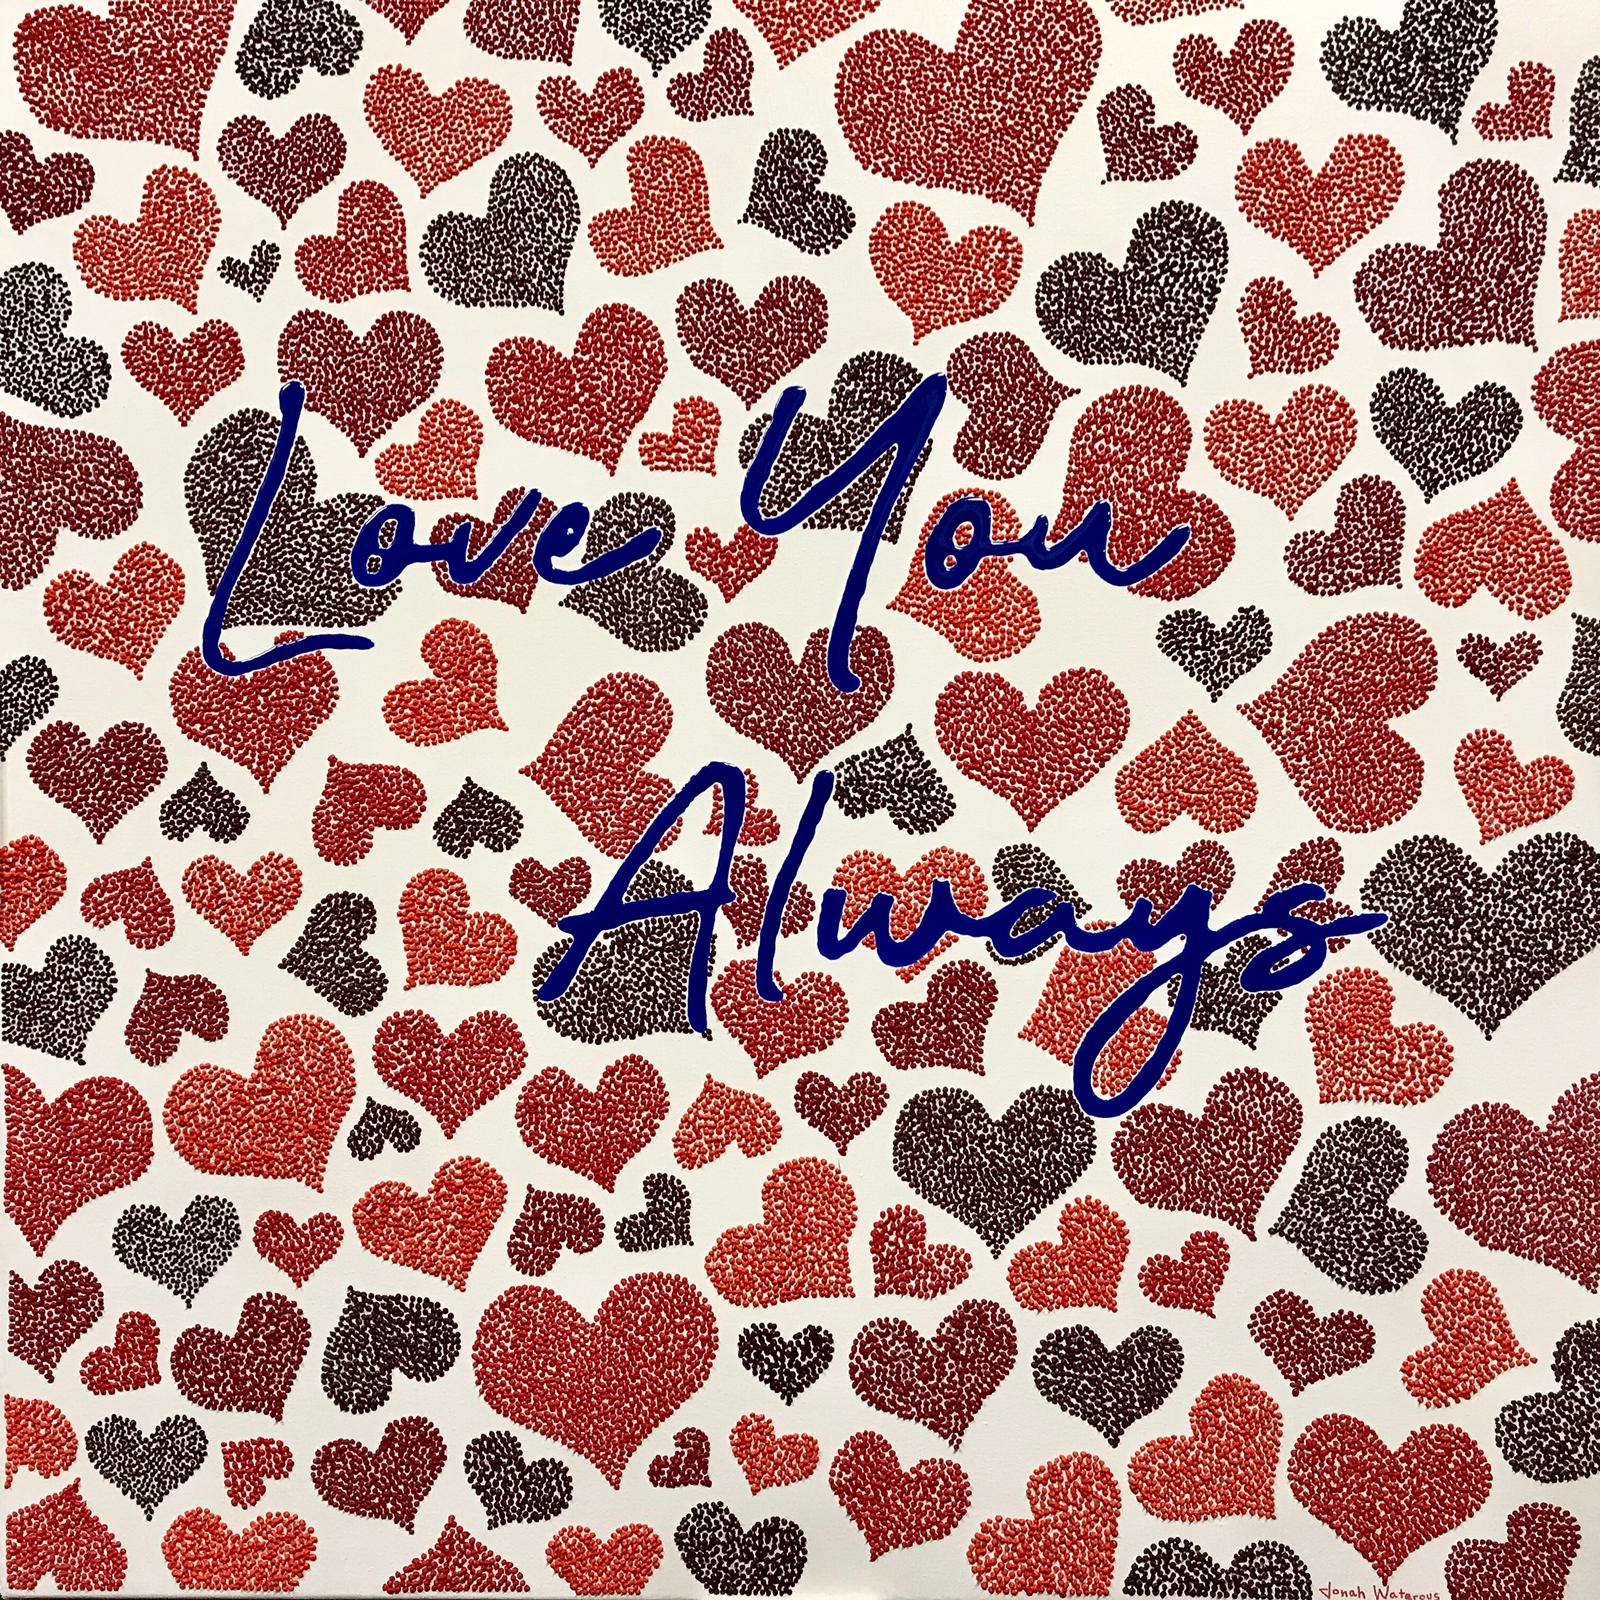 Love You
Always
Jonah Waterous